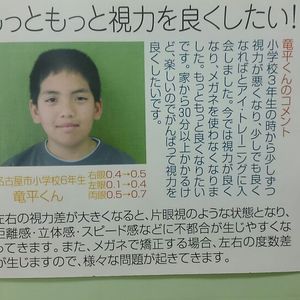 もっともっと視力を良くしたい!
竜平くんのコメント
小学校3年生の時から少しずつ
視力が悪くなり、少しでも良く
なればとアイ・トレーニングに入
会しました。今では視力が良く
なり、メガネを使わなくなりま
した。もっともっと良くなりたい
です。家から30分以上かかるけ
ど、楽しいのでがんばって視力を
良くしたいです。
名古屋市小学校6年生
竜平くん
右眼0.4→0.5
左眼0.1→0.4
両眼0.5→0.7
左右の視力差が大きくなると、片眼視のような状態となり、
距離感・立体感・スピード感などに不都合が生じやすくな
ってきます。また、メガネで矯正する場合、左右の度数差
が生じますので、様々な問題が起きてきます。